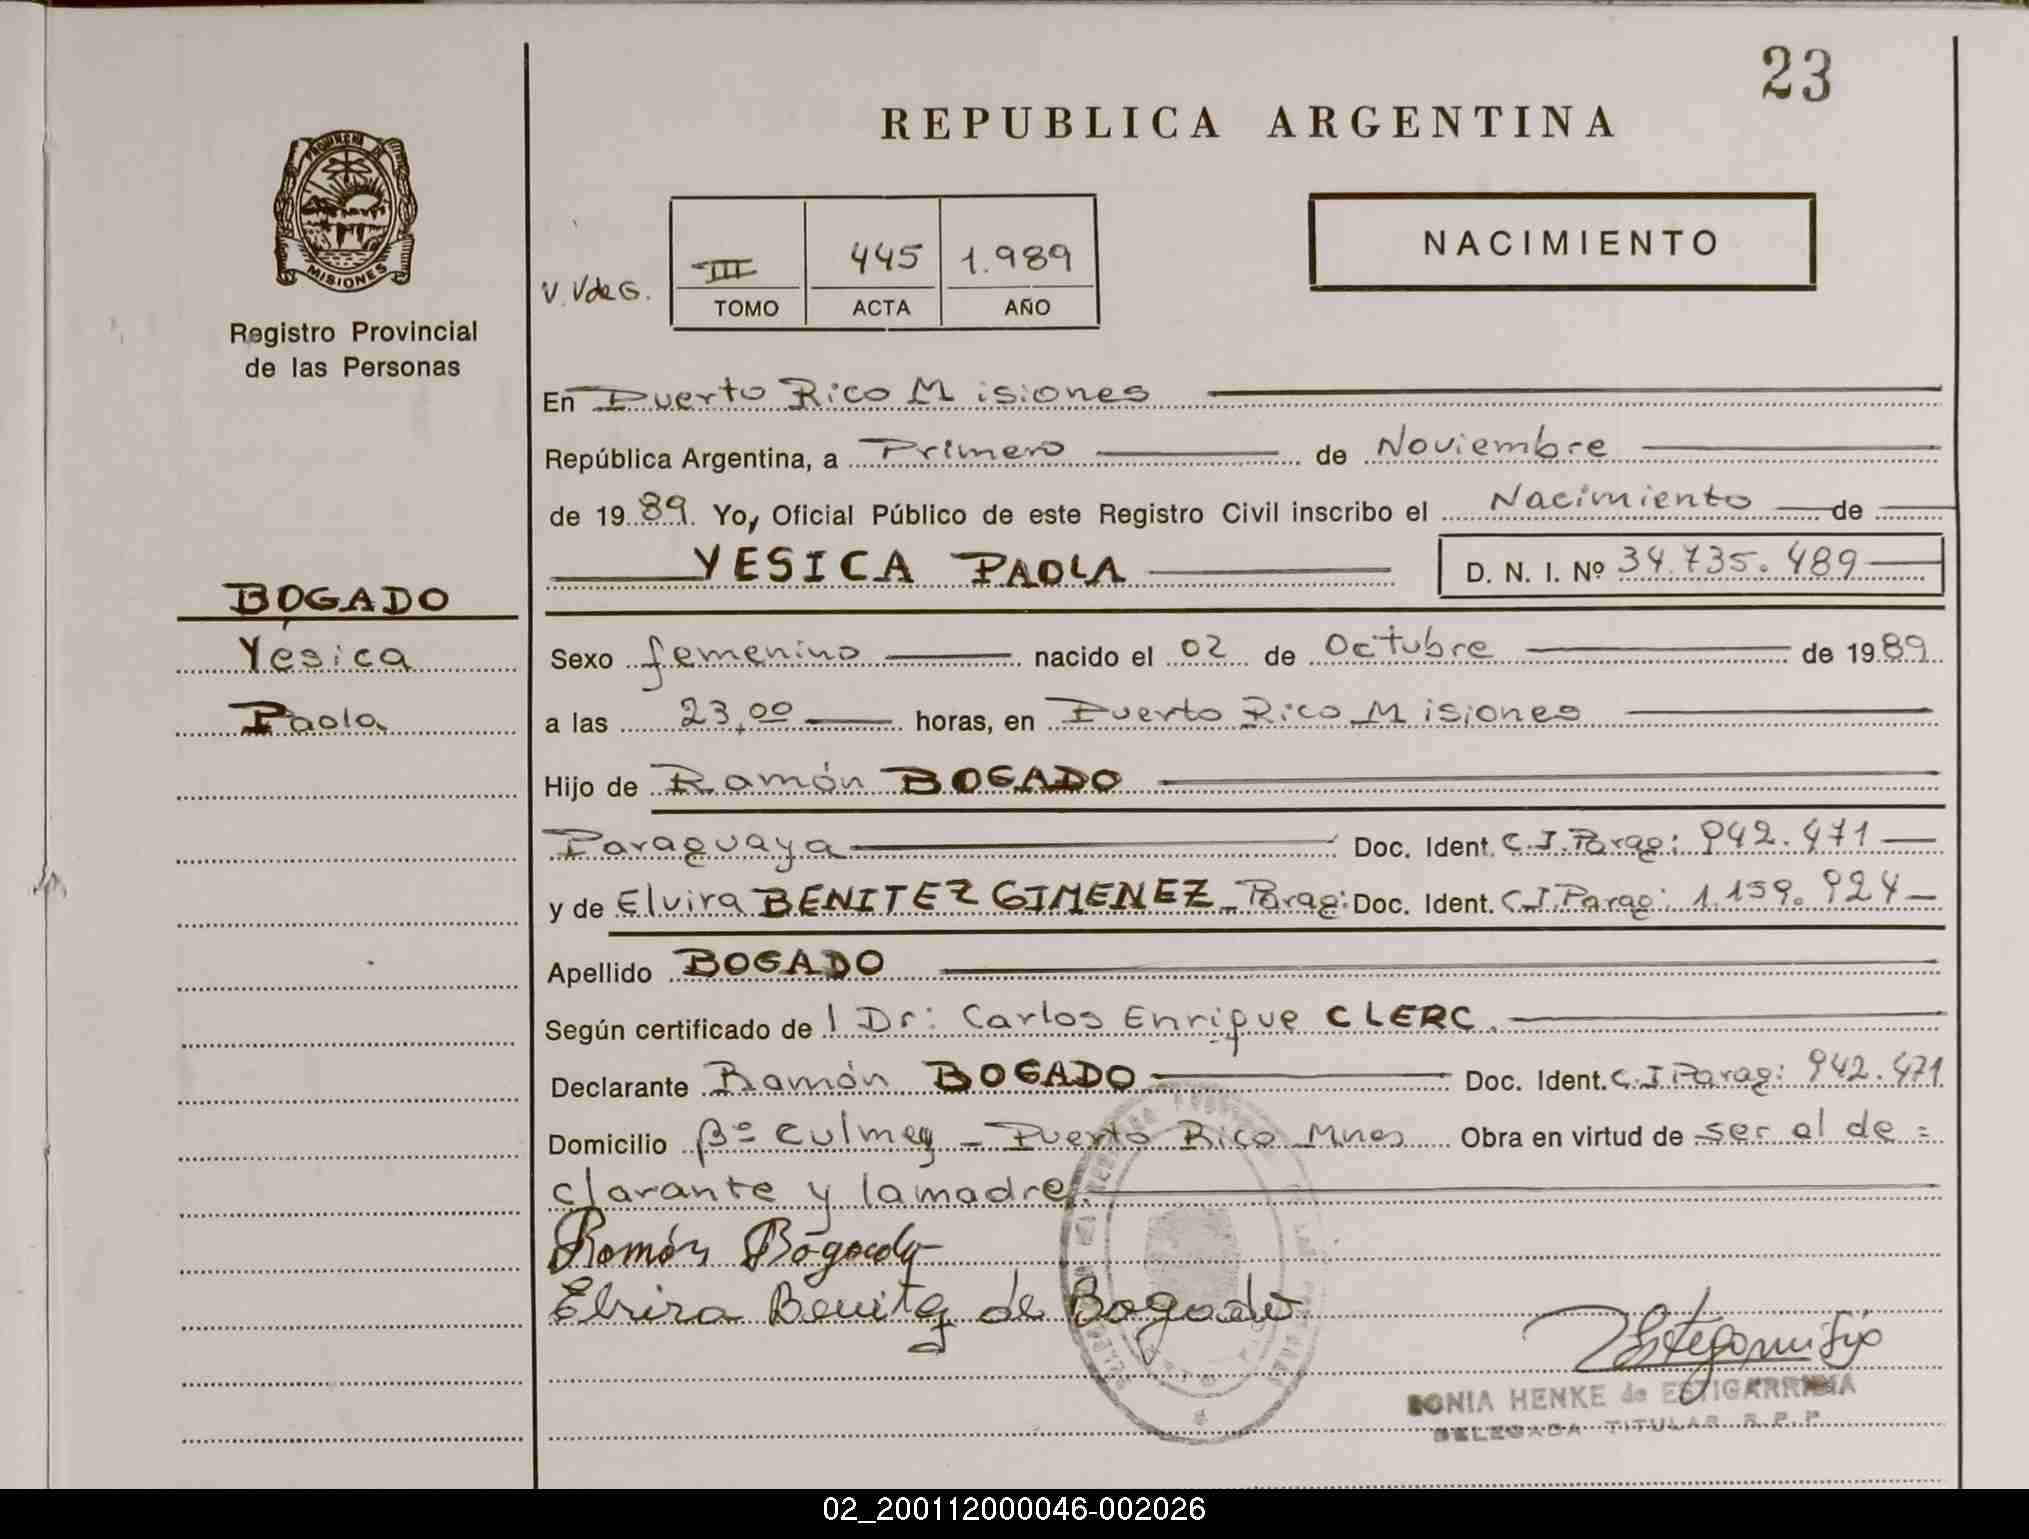 23
REPUBLICA ARGENTINA
PROVINCIA DE
MISIONES
Registro Provincial
de las Personas
V. VdeG.
III 445 1.989
TOMO ACTA AÑO
NACIMIENTO
En Puerto Rico Misiones
República Argentina, a Primero de Noviembre
de 1989. Yo, Oficial Público de este Registro Civil inscribo el Nacimiento de
YESICA PAOLA D. N. I. Nº 34.735.489
BOGADO
Yésica
Paola
Sexo femenino nacido el 02 de Octubre de 1989
a las 23,00 horas, en Puerto Rico Misiones
Hijo de Ramón BOGADO
Paraguaya Doc. Ident. C.I.Parag: 942.471
y de Elvira BENITEZ GIMENEZ_Parag: Doc. Ident. C.I.Parag: 1.159.924
Apellido BOGADO
Según certificado de l Dr: Carlos Enrique CLERC.
Declarante Ramón BOGADO Doc. Ident. C.I Parag: 942.471
Domicilio Bº Culmey - Puerto Rico Mnes Obra en virtud de ser el de =
clarante y la madre.
Ramón Bogado
Elvira Benitez de Bogado
SONIA HENKE de ESTIGARRIBIA
DELEGADA TITULAR R.P.P.
02_200112000046-002026